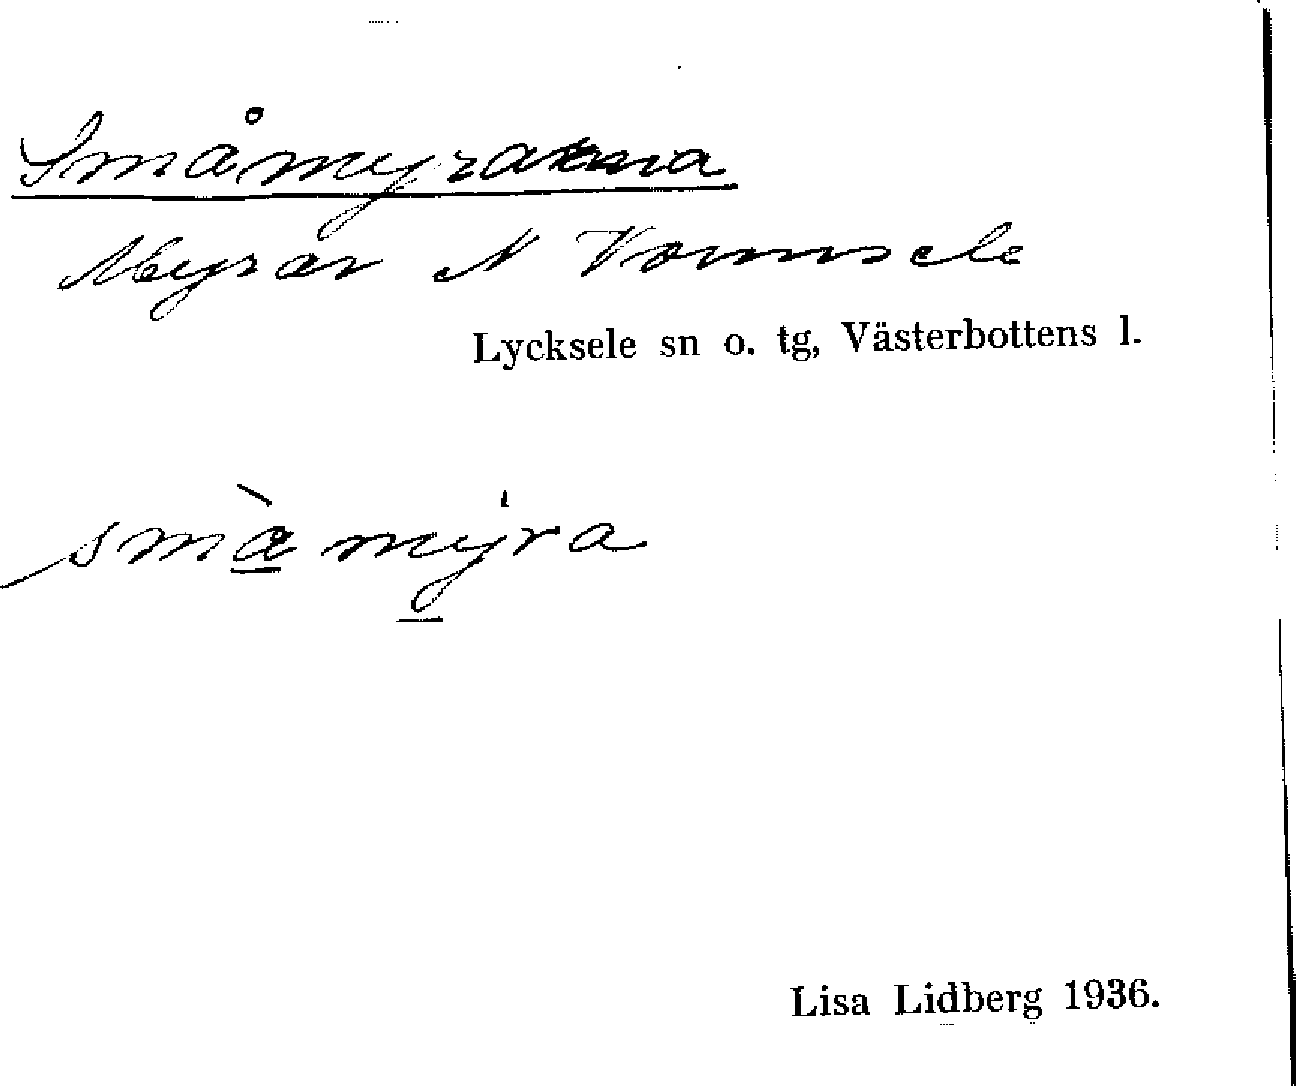 Småmyrarna
Myrar N Vormsele
Lycksele sn o. tg, Västerbottens l.
smàmy̍ra
Lisa Lidberg 1936.